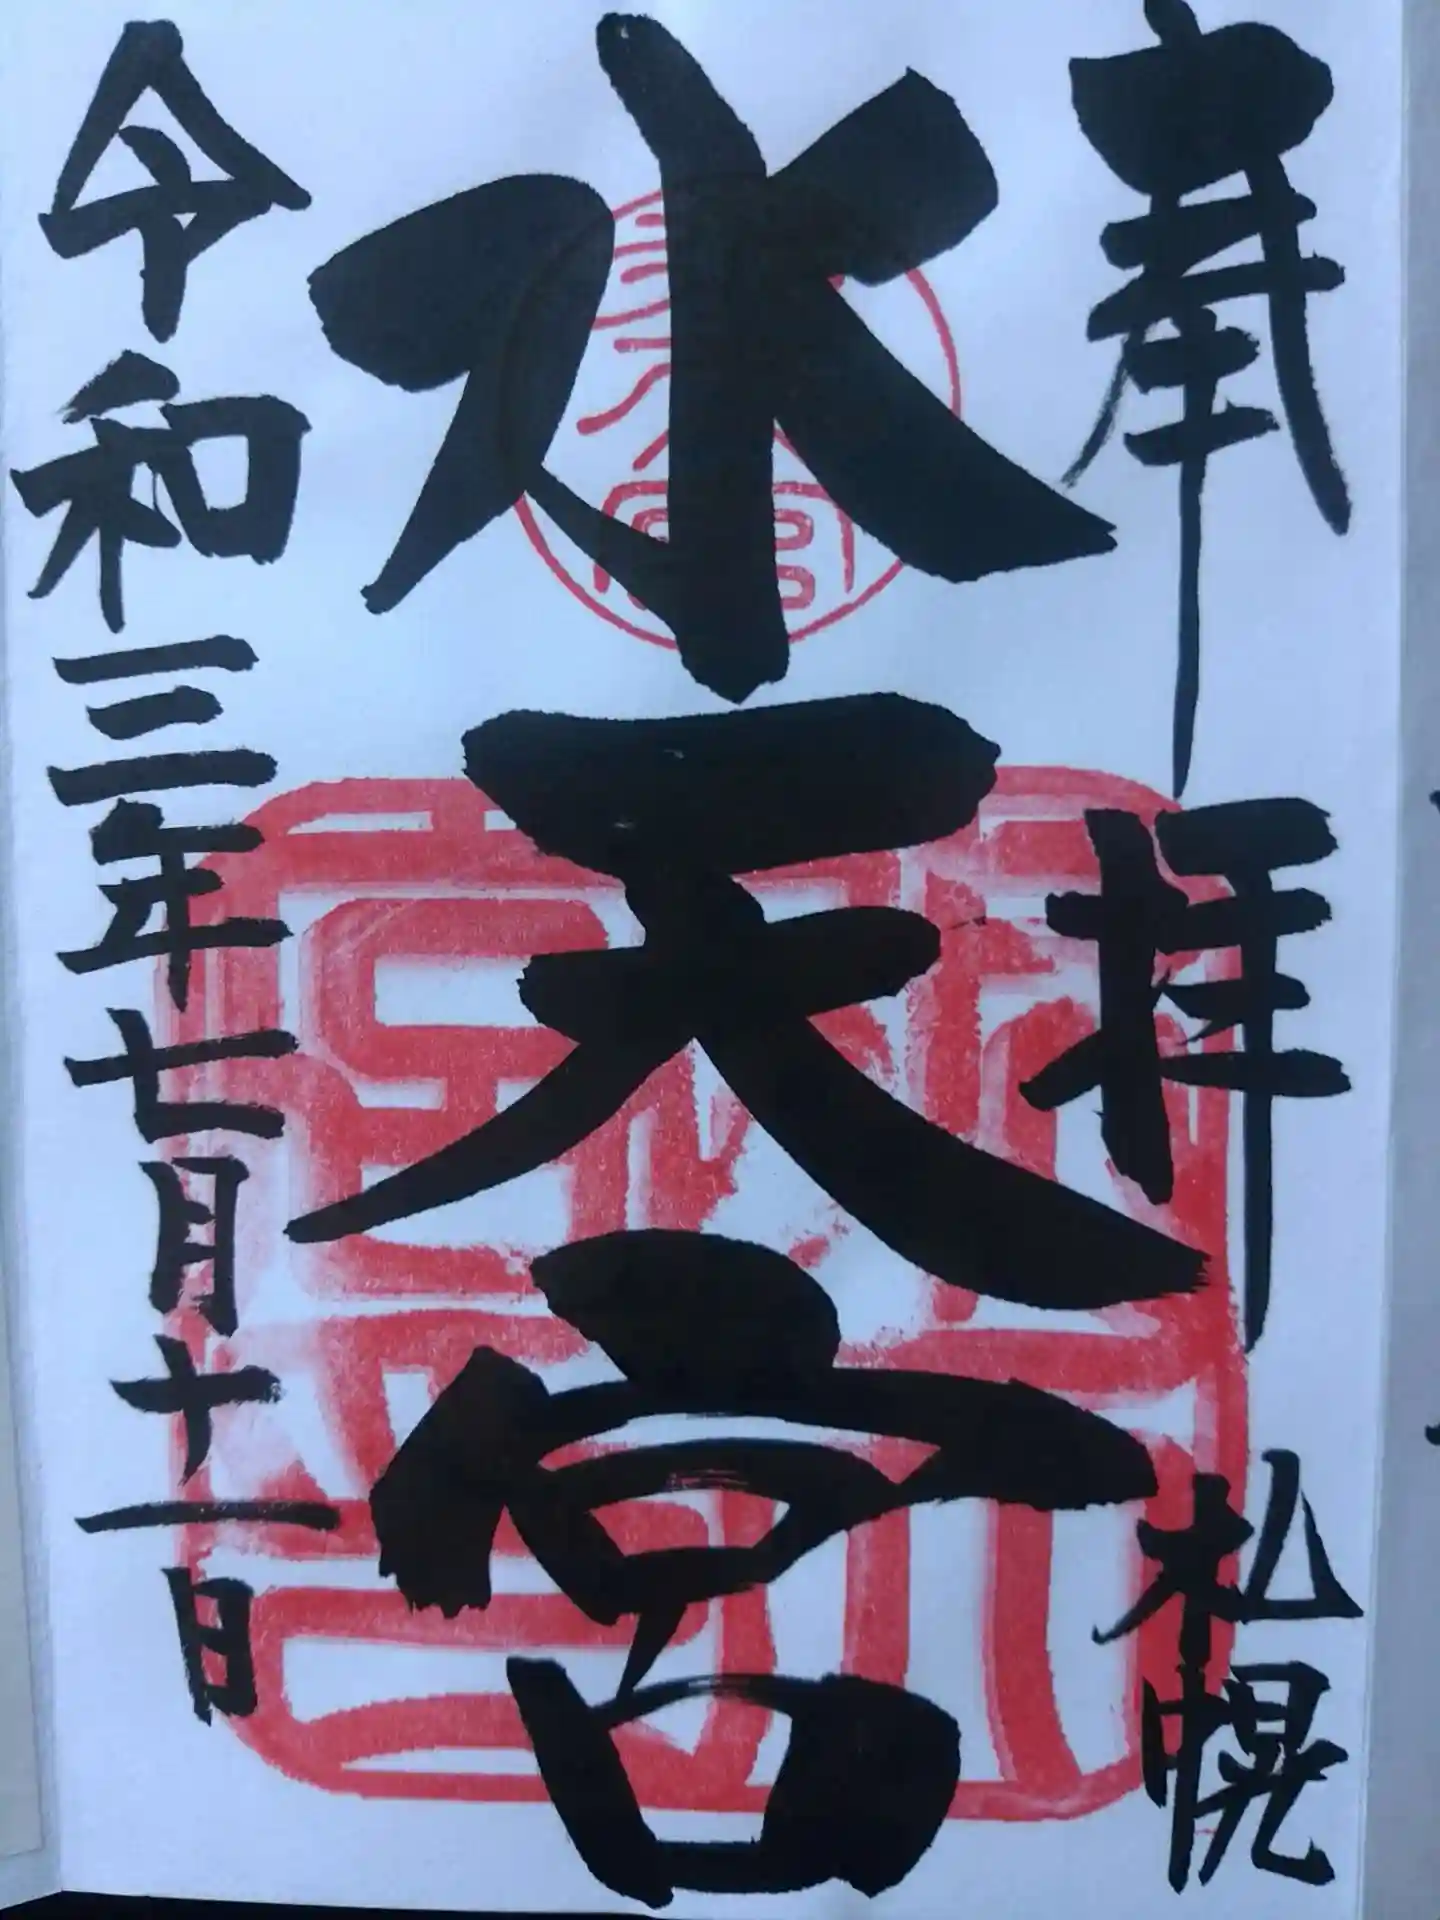 奉拝 札幌
水天宮
令和三年七月十一日